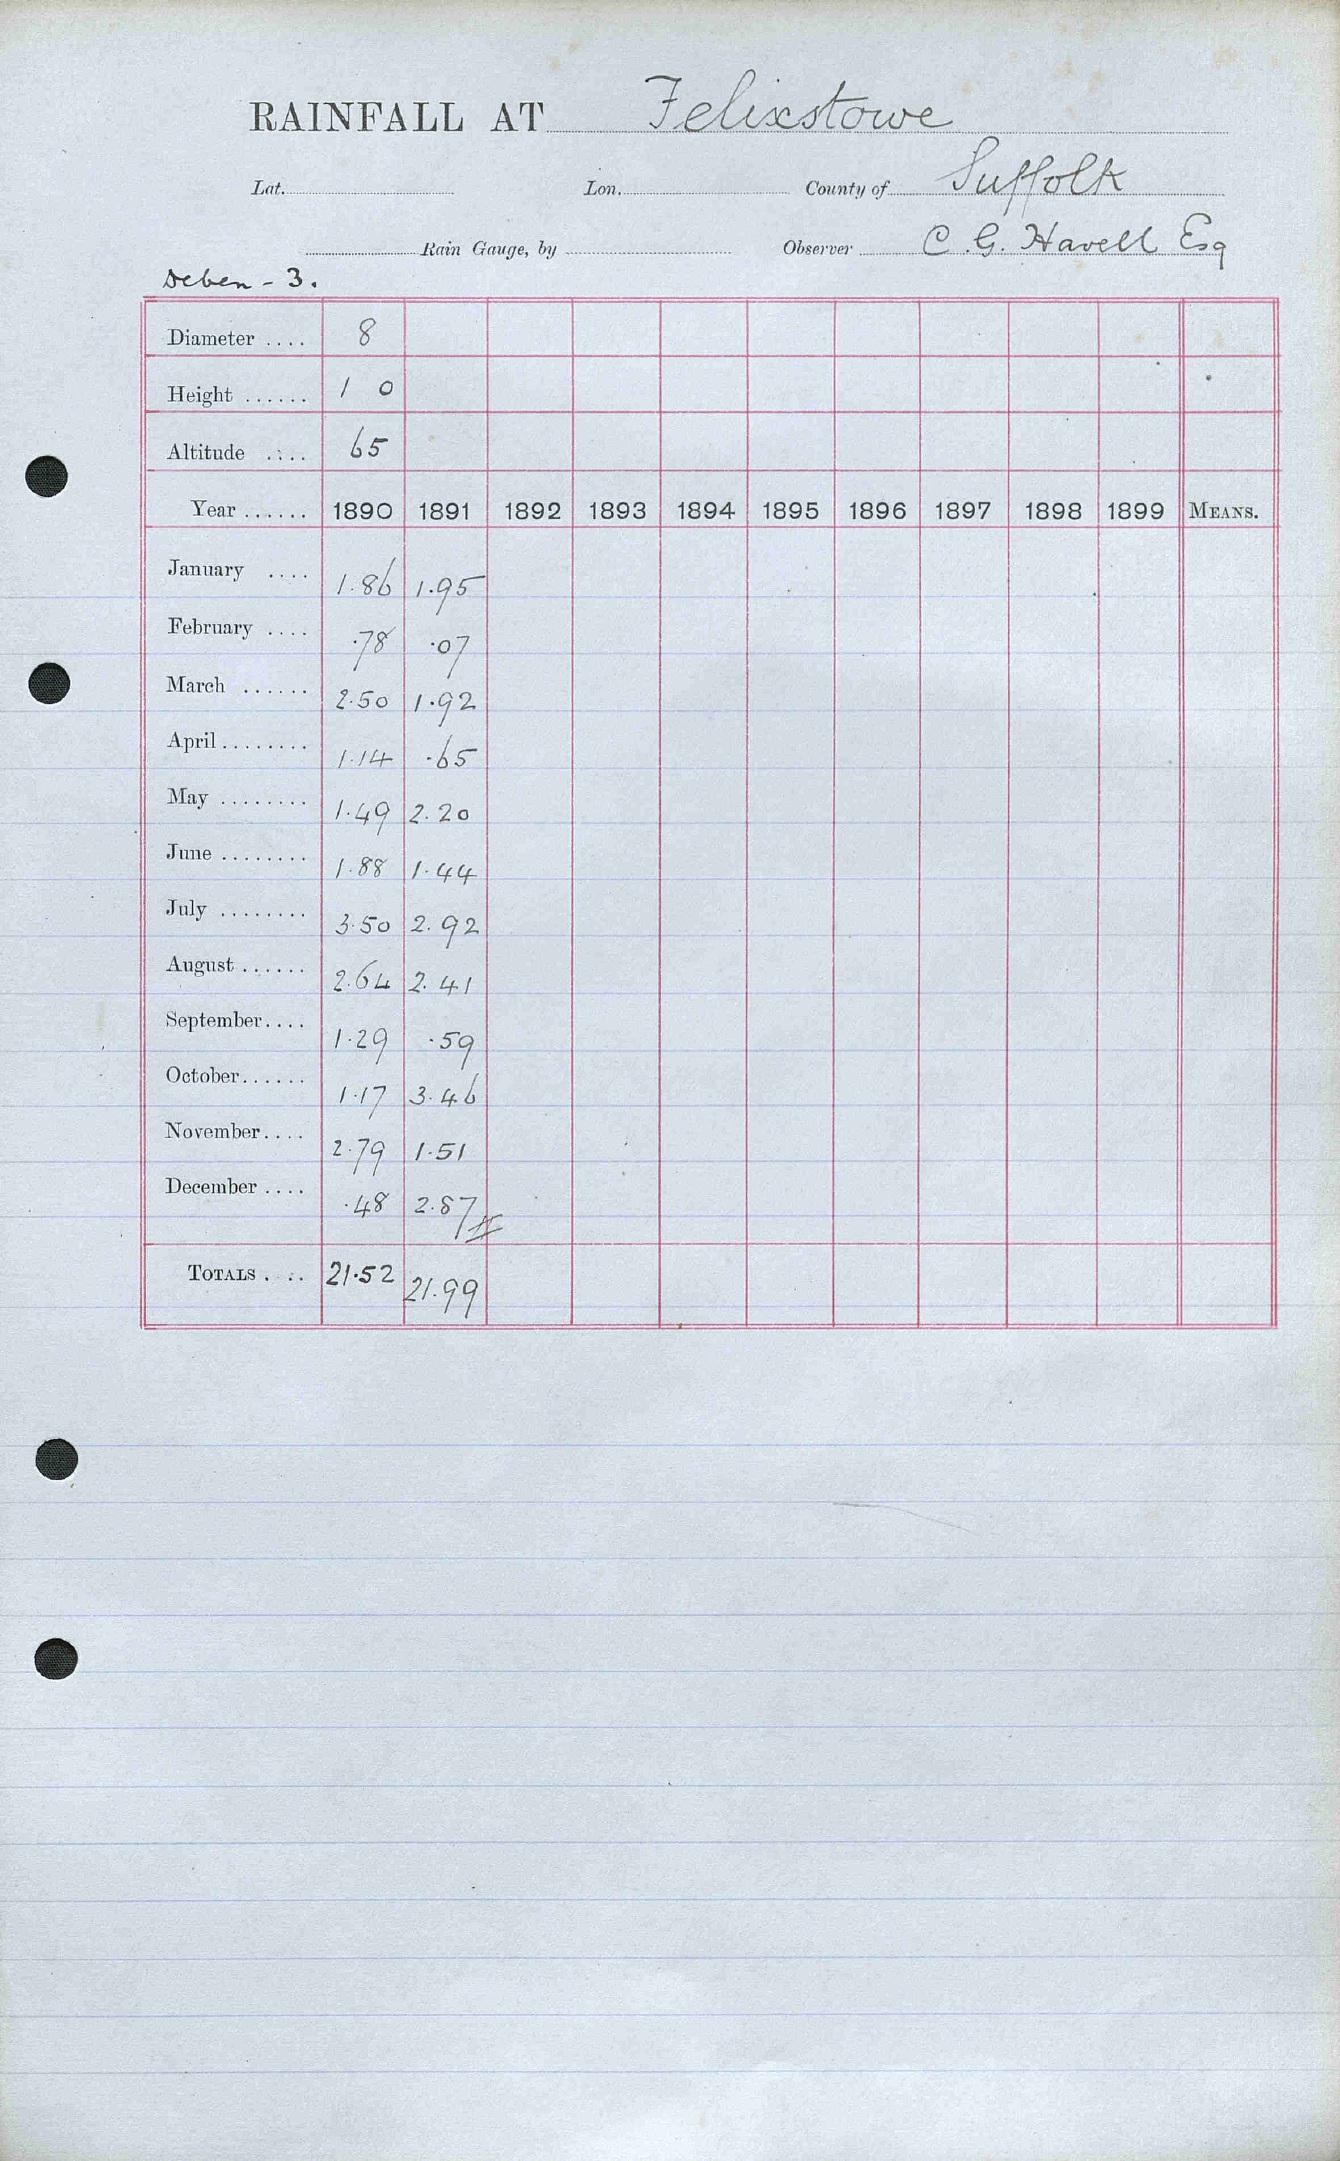 RAINFALL AT Felixstowe
Lat. Lon. County of Suffolk
Rain Gauge, by Observer C. G. Havell Esq
Deben - 3.
Diameter .... 8
Height ...... 1 0
Altitude .... 65
Year ...... 1890 1891 1892 1893 1894 1895 1896 1897 1898 1899 MEANS.
January .... 1.86 1.95
February .... .78 .07
March ...... 2.50 1.92
April ........ 1.14 .65
May ........ 1.49 2.20
June ........ 1.88 1.44
July ........ 3.50 2.92
August ...... 2.64 2.41
September.... 1.29 .59
October...... 1.17 3.46
November.... 2.79 1.51
December .... .48 2.87
TOTALS .... 21.52 21.99